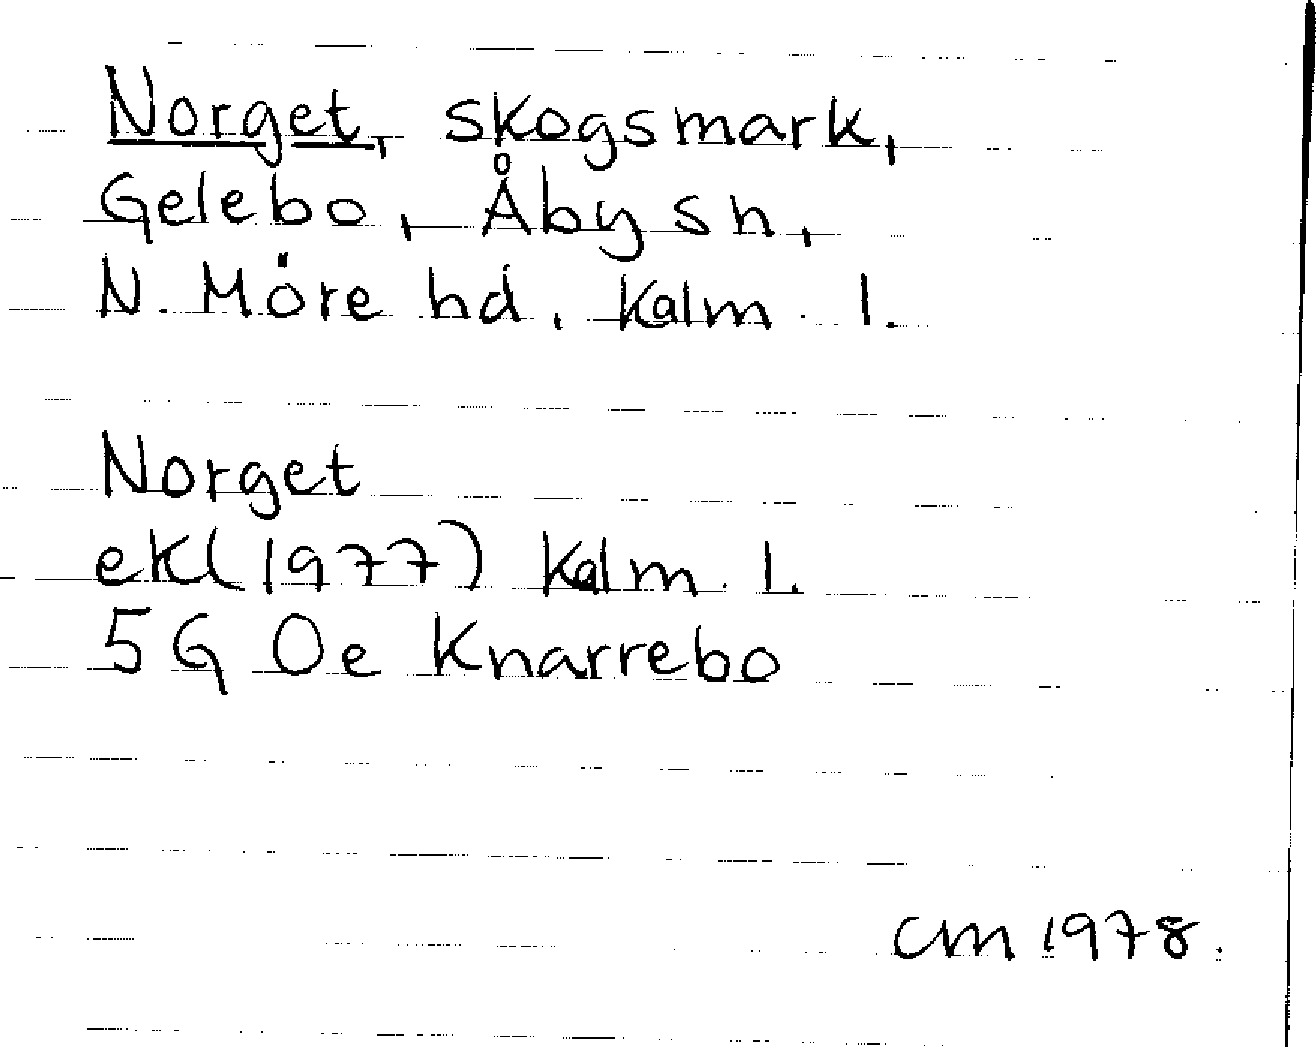 Norget, skogsmark,
Gelebo, Åby sn,
N. Möre hd, Kalm. l.
Norget
ekl(1977) Kalm. l.
5G Oe Knarrebo
CM 1978.